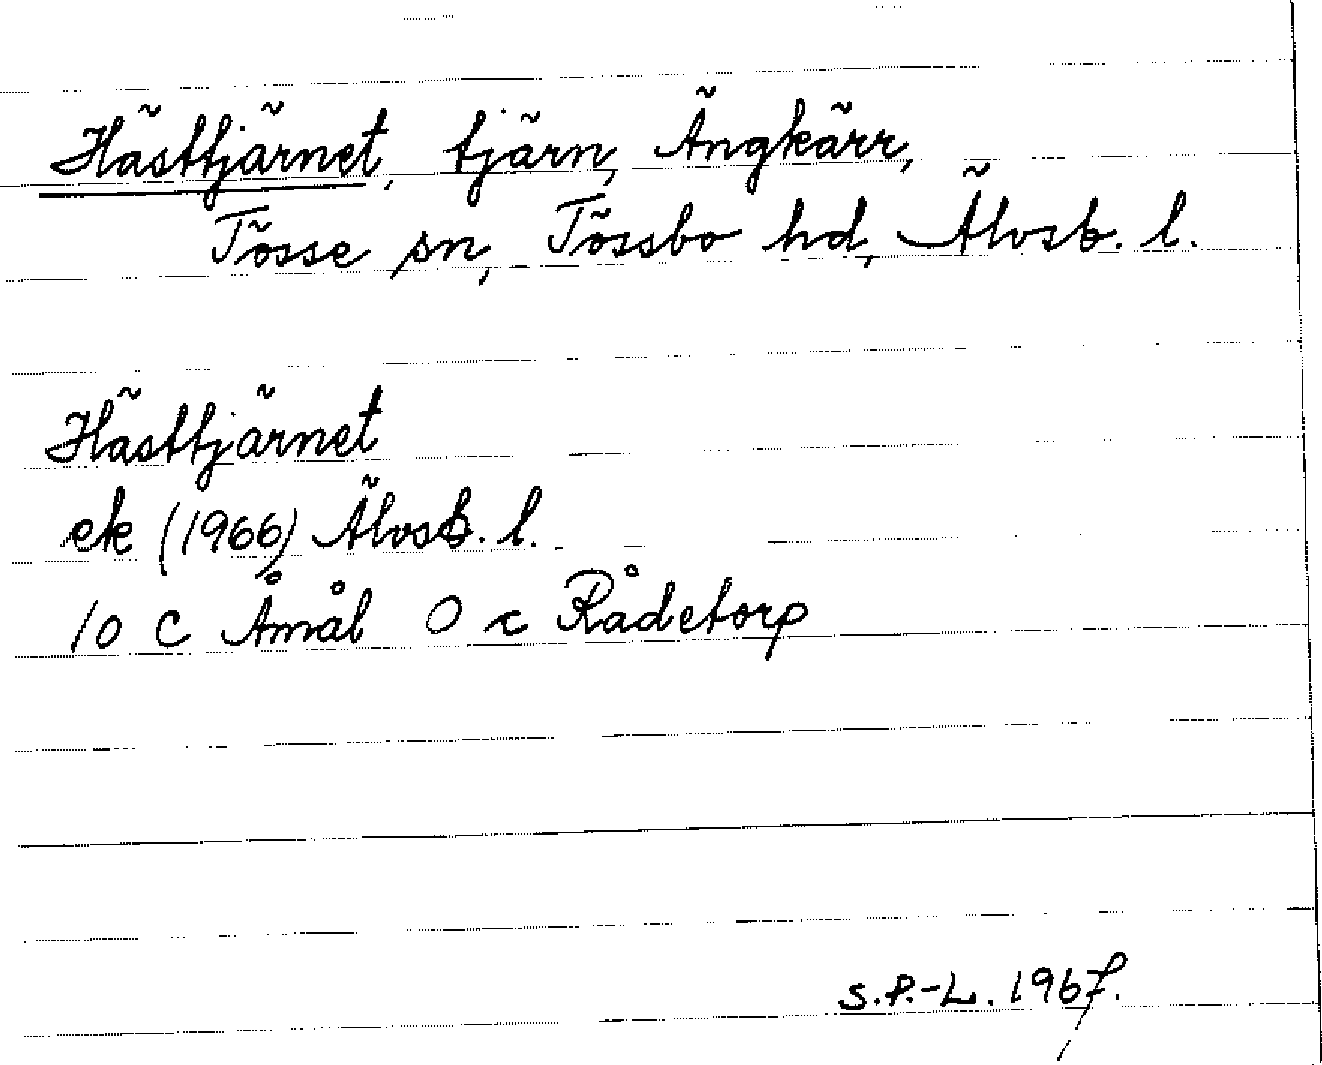 Hästtjärnet, tjärn, Ängkärr,
Tösse sn, Tössbo hd, Älvsb. l.
Hästtjärnet
ek (1966) Älvsb. l.
10 C Åmål O c Rådetorp
S.P.-L. 1967.